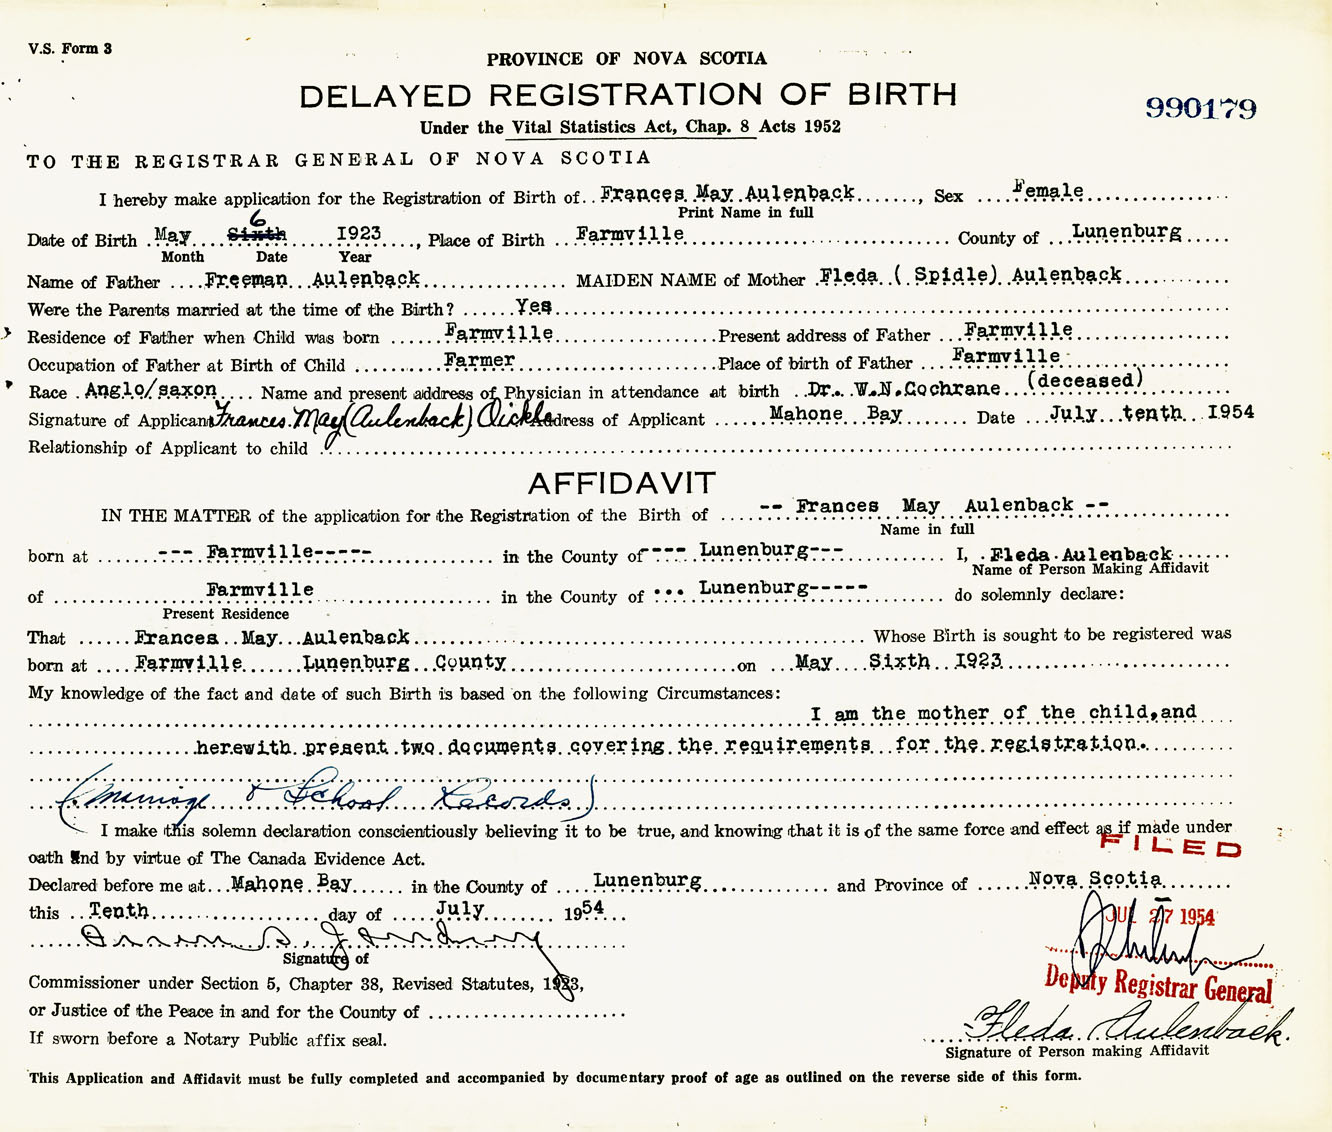 V.S. Form 3
PROVINCE OF NOVA SCOTIA
DELAYED REGISTRATION OF BIRTH
990179
Under the Vital Statistics Act, Chap. 8 Acts 1952
TO THE REGISTRAR GENERAL OF NOVA SCOTIA
I hereby make application for the Registration of Birth of Frances May Aulenback, Sex Female
Print Name in full
6
Date of Birth May Sixth 1923, Place of Birth Farmville County of Lunenburg
Month Date Year
Name of Father Freeman Aulenback MAIDEN NAME of Mother Fleda ( Spidle) Aulenback
Were the Parents married at the time of the Birth? Yes
Residence of Father when Child was born Farmville Present address of Father Farmville
Occupation of Father at Birth of Child Farmer Place of birth of Father Farmville
Race Anglo/saxon Name and present address of Physician in attendance at birth Dr. W.N.Cochrane (deceased)
Signature of Applicant Frances May (Aulenback) Address of Applicant Mahone Bay Date July tenth 1954
Relationship of Applicant to child
AFFIDAVIT
IN THE MATTER of the application for the Registration of the Birth of -- Frances May Aulenback --
Name in full
born at --- Farmville----- in the County of ---- Lunenburg--- I, Fleda Aulenback
Name of Person Making Affidavit
of Farmville in the County of Lunenburg----- do solemnly declare:
Present Residence
That Frances May Aulenback Whose Birth is sought to be registered was
born at Farmville Lunenburg County on May Sixth 1923
My knowledge of the fact and date of such Birth is based on the following Circumstances:
I am the mother of the child,and
herewith present two documents covering the requirements for the registration.
(Marriage & School Records)
I make this solemn declaration conscientiously believing it to be true, and knowing that it is of the same force and effect as if made under
FILED
oath and by virtue of The Canada Evidence Act.
Declared before me at Mahone Bay in the County of Lunenburg and Province of Nova Scotia
this Tenth day of July 1954
JUL 27 1954
Signature of
Deputy Registrar General
Commissioner under Section 5, Chapter 38, Revised Statutes, 1923,
or Justice of the Peace in and for the County of
Fleda Aulenback
If sworn before a Notary Public affix seal.
Signature of Person making Affidavit
This Application and Affidavit must be fully completed and accompanied by documentary proof of age as outlined on the reverse side of this form.